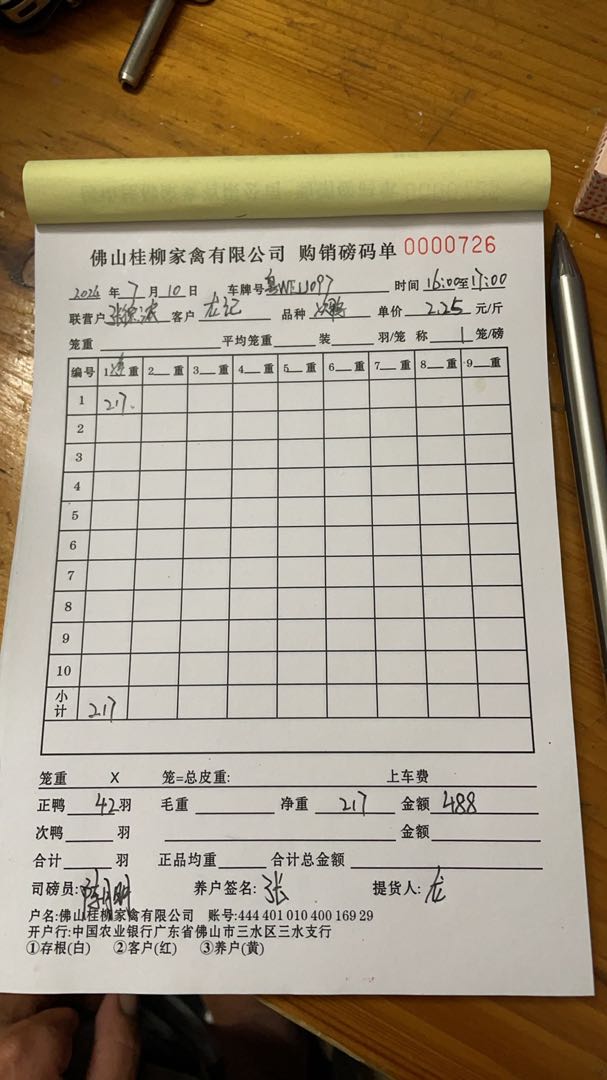 佛山桂柳家禽有限公司 购销磅码单 0000726
2024 年 7 月 10 日 车牌号 粤WFJJ097 时间 16:00至17:00
联营户 客户 龙记 品种 次鸭 单价 2.25 元/斤
笼重 平均笼重 装 羽/笼 称 1 笼/磅
编号 1 重 2 重 3 重 4 重 5 重 6 重 7 重 8 重 9 重
1 217.
2
3
4
5
6
7
8
9
10
小计 217
笼重 X 笼=总皮重: 上车费
正鸭 42 羽 毛重 净重 217 金额 488
次鸭 羽 金额
合计 羽 正品均重 合计总金额
司磅员: 养户签名: 张 提货人: 龙
户名:佛山桂柳家禽有限公司 账号:444 401 010 400 169 29
开户行:中国农业银行广东省佛山市三水区三水支行
①存根(白) ②客户(红) ③养户(黄)